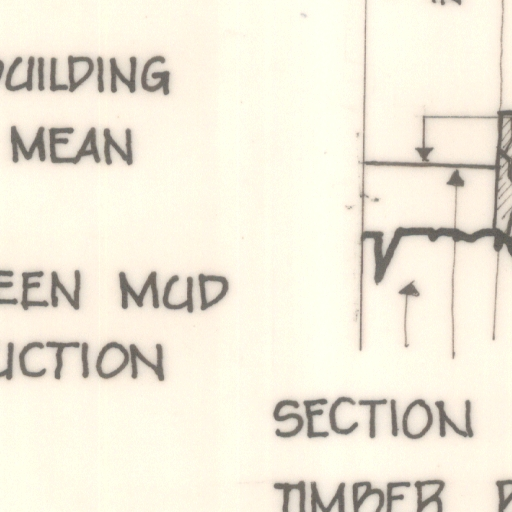 BUILDING
MEAN
EEN MUD
UCTION
IN
SECTION
TIMBER